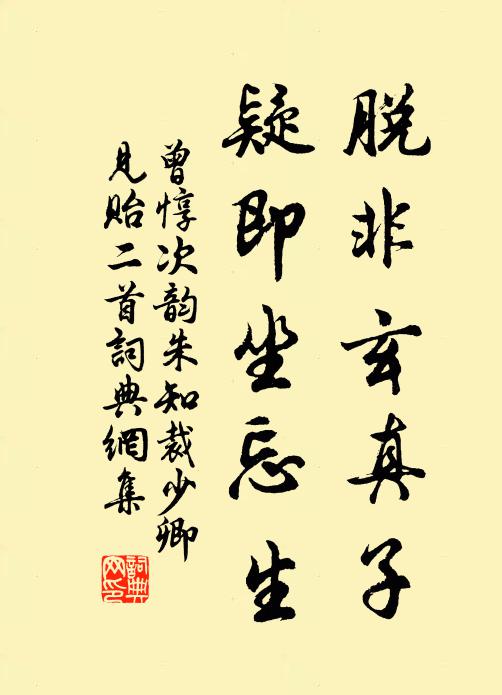 脱非玄真子
疑即坐忘生
曾惇次韵朱知裁少卿
見贻二首詞典網集
詞典网印